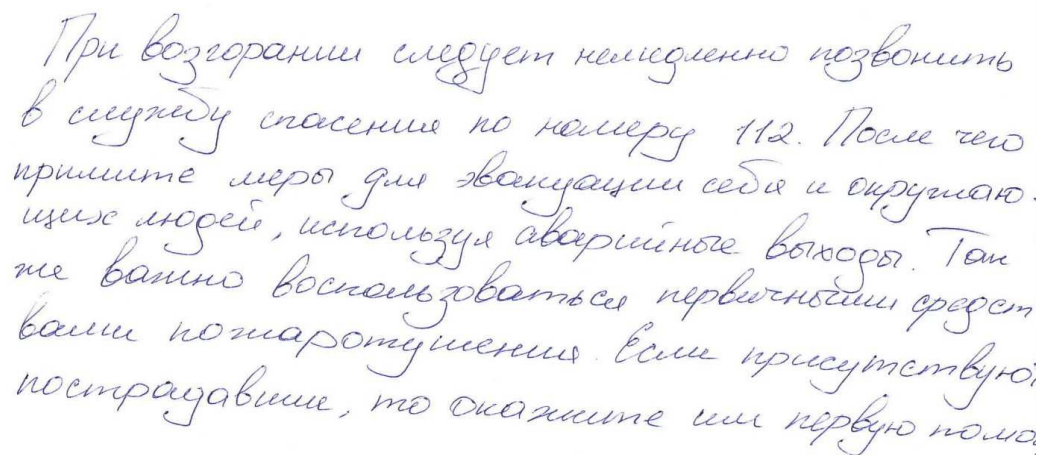 При возгорании следует немедленно позвонить
в службу спасения по номеру 112. После чего
примите меры для эвакуации себя и окружаю-
щих людей, используя аварийные выходы. Так
же важно воспользоваться первичными средст
вами пожаротушения. Если присутствуют
пострадавшие, то окажите им первую помо